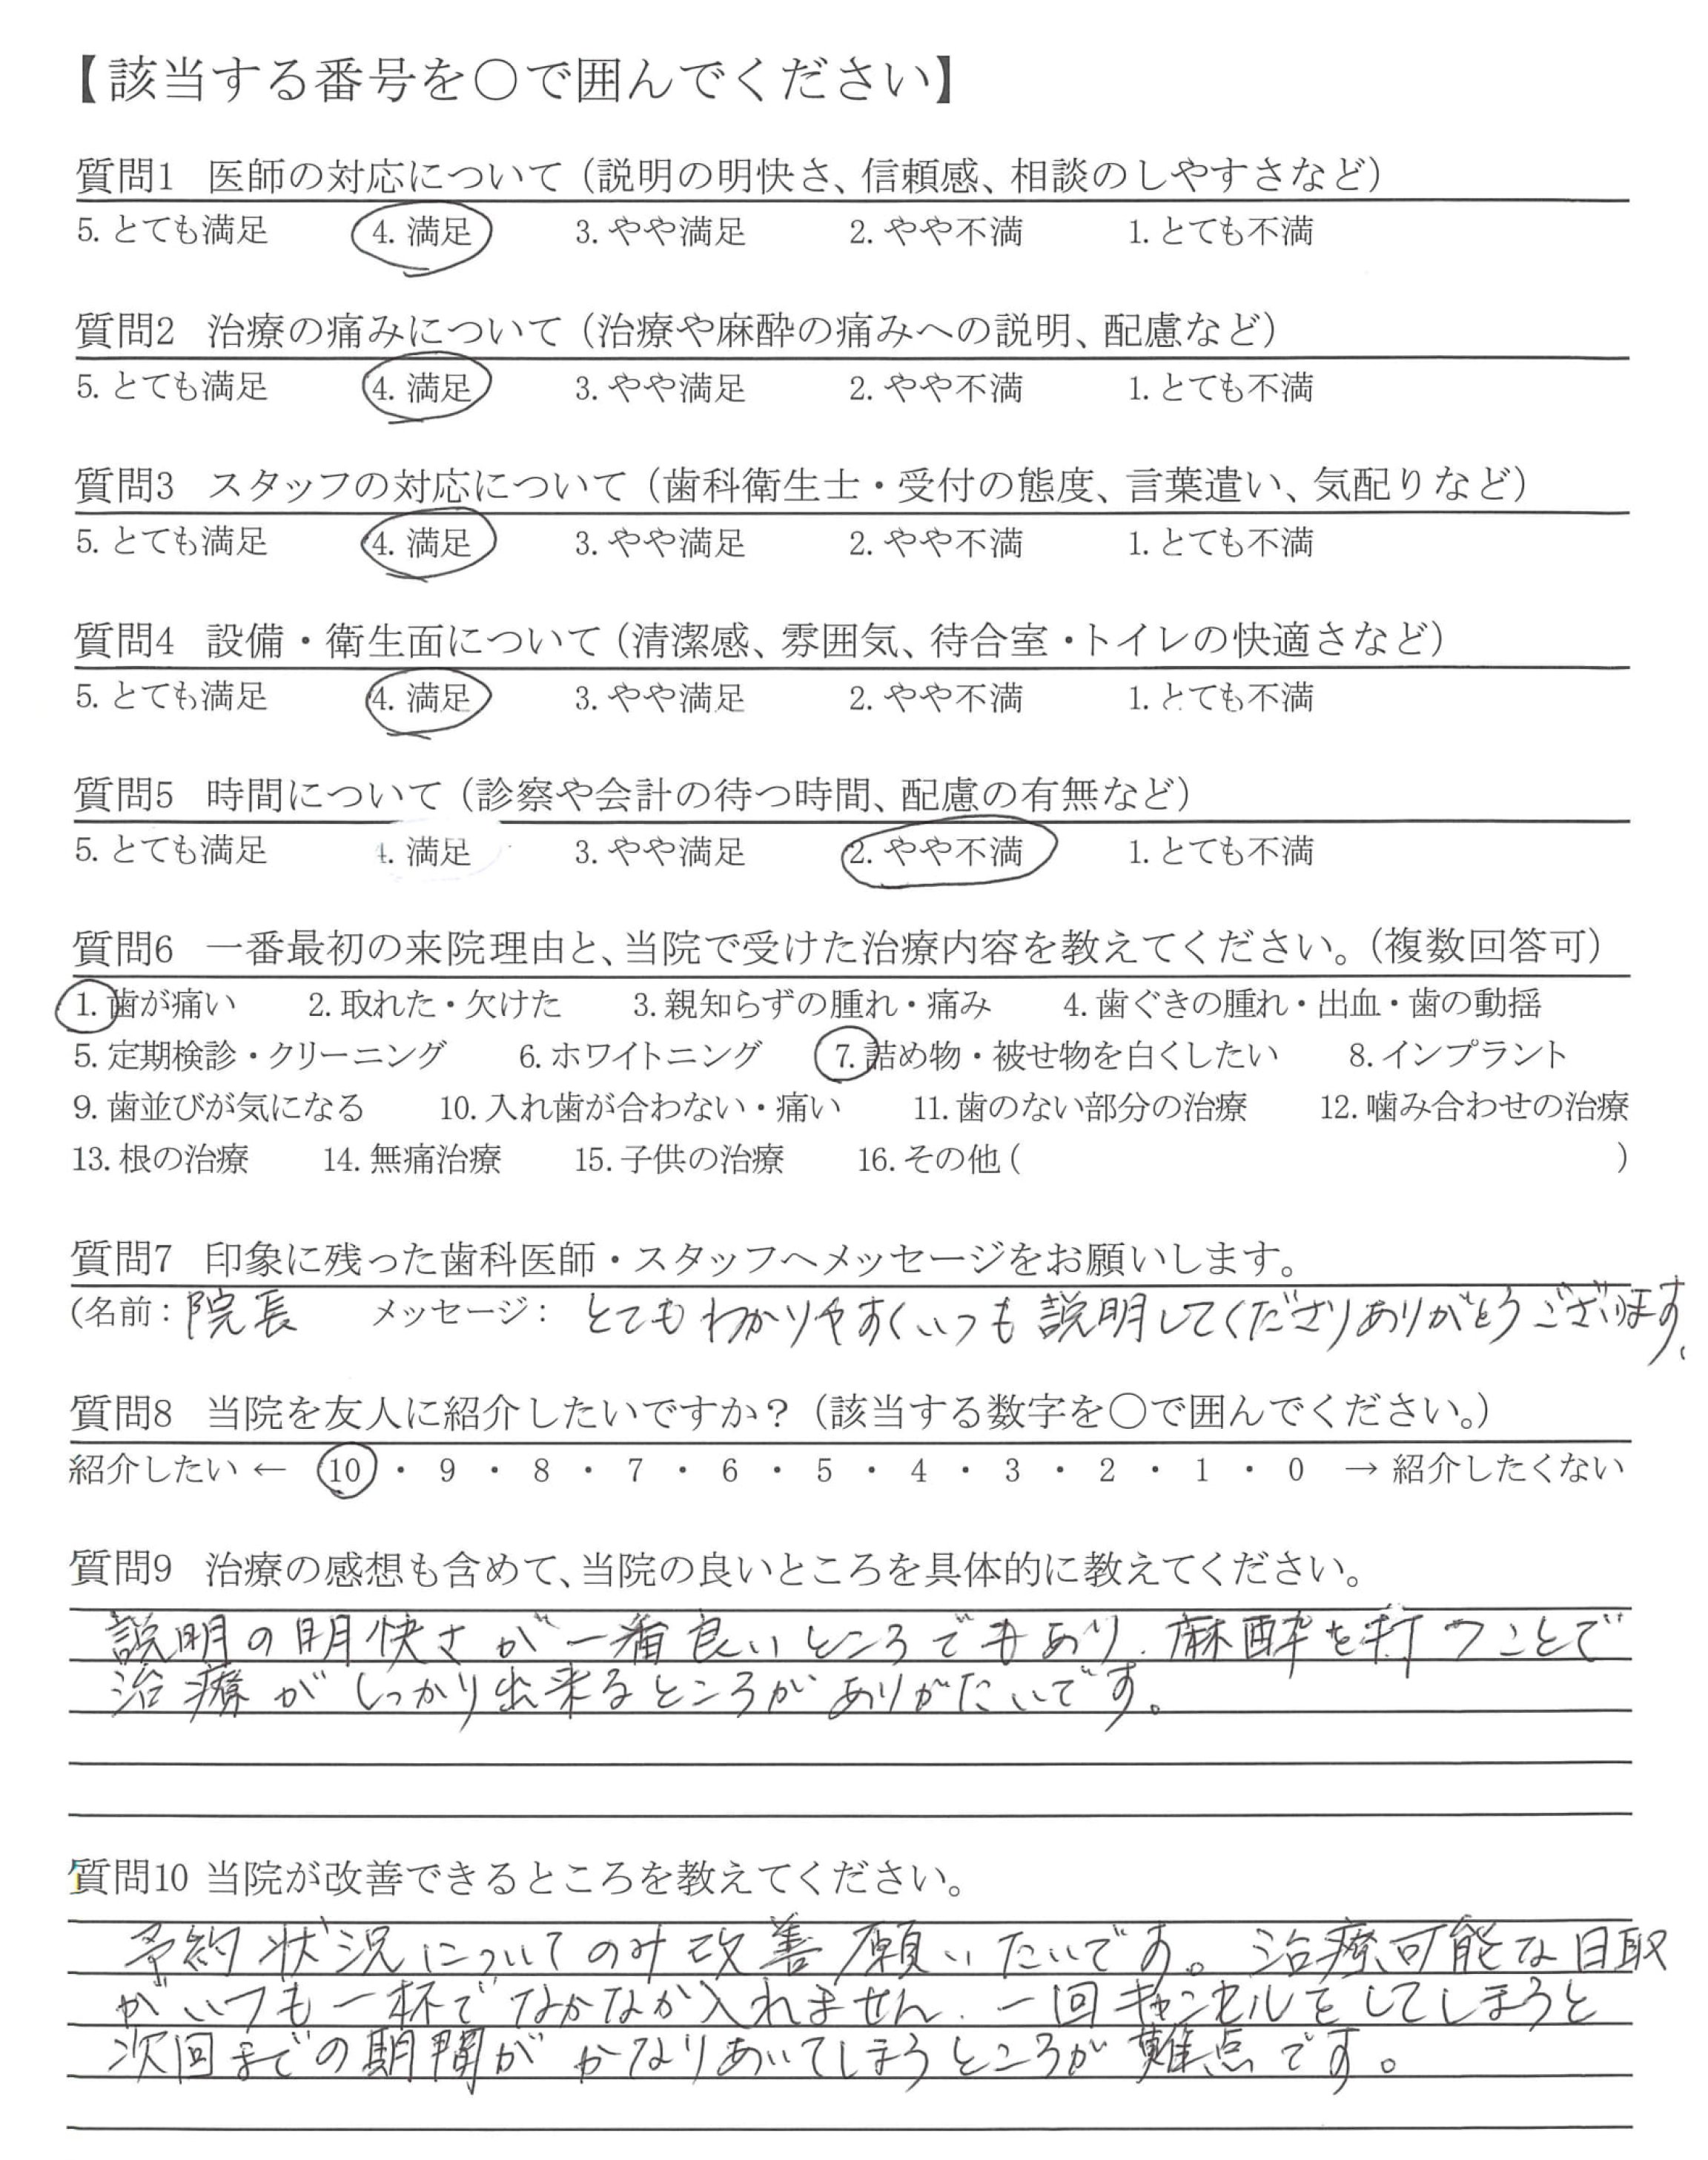 【該当する番号を○で囲んでください】
質問1 医師の対応について（説明の明快さ、信頼感、相談のしやすさなど）
5. とても満足 4. 満足 3. やや満足 2. やや不満 1. とても不満
質問2 治療の痛みについて（治療や麻酔の痛みへの説明、配慮など）
5. とても満足 4. 満足 3. やや満足 2. やや不満 1. とても不満
質問3 スタッフの対応について（歯科衛生士・受付の態度、言葉遣い、気配りなど）
5. とても満足 4. 満足 3. やや満足 2. やや不満 1. とても不満
質問4 設備・衛生面について（清潔感、雰囲気、待合室・トイレの快適さなど）
5. とても満足 4. 満足 3. やや満足 2. やや不満 1. とても不満
質問5 時間について（診察や会計の待つ時間、配慮の有無など）
5. とても満足 4. 満足 3. やや満足 2. やや不満 1. とても不満
質問6 一番最初の来院理由と、当院で受けた治療内容を教えてください。（複数回答可）
1. 歯が痛い 2. 取れた・欠けた 3. 親知らずの腫れ・痛み 4. 歯ぐきの腫れ・出血・歯の動揺
5. 定期検診・クリーニング 6. ホワイトニング 7. 詰め物・被せ物を白くしたい 8. インプラント
9. 歯並びが気になる 10. 入れ歯が合わない・痛い 11. 歯のない部分の治療 12. 噛み合わせの治療
13. 根の治療 14. 無痛治療 15. 子供の治療 16. その他（ ）
質問7 印象に残った歯科医師・スタッフへメッセージをお願いします。
（名前：院長 メッセージ：とてもわかりやすくいつも説明してくださりありがとうございます。
質問8 当院を友人に紹介したいですか？（該当する数字を○で囲んでください。）
紹介したい ← 10 ・ 9 ・ 8 ・ 7 ・ 6 ・ 5 ・ 4 ・ 3 ・ 2 ・ 1 ・ 0 → 紹介したくない
質問9 治療の感想も含めて、当院の良いところを具体的に教えてください。
説明の明快さが一番良いところでもあり、麻酔を打つことで
治療がしっかり出来るところがありがたいです。
質問10 当院が改善できるところを教えてください。
予約状況についてのみ改善願いたいです。治療可能な日取
がいつも一杯でなかなか入れません。一回キャンセルをしてしまうと
次回までの期間がかなりあいてしまうところが難点です。